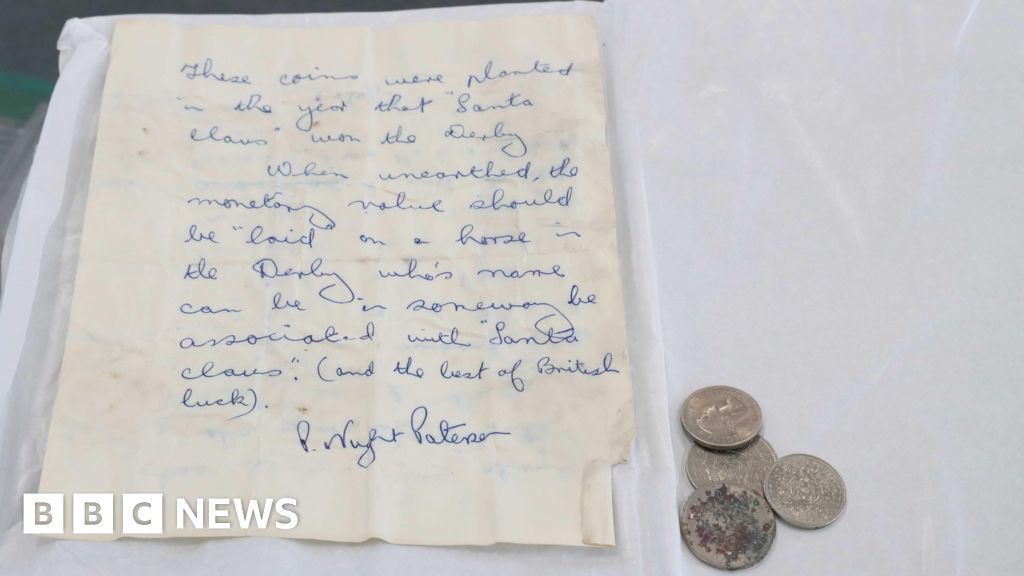 These coins were planted
in the year that "Santa
Claus" won the Derby
When unearthed, the
monetary value should
be "laid" on a horse in
the Derby who's name
can be in someway be
associated with "Santa
Claus". (and the best of British
luck).
P. Wright Paterson
BBC NEWS